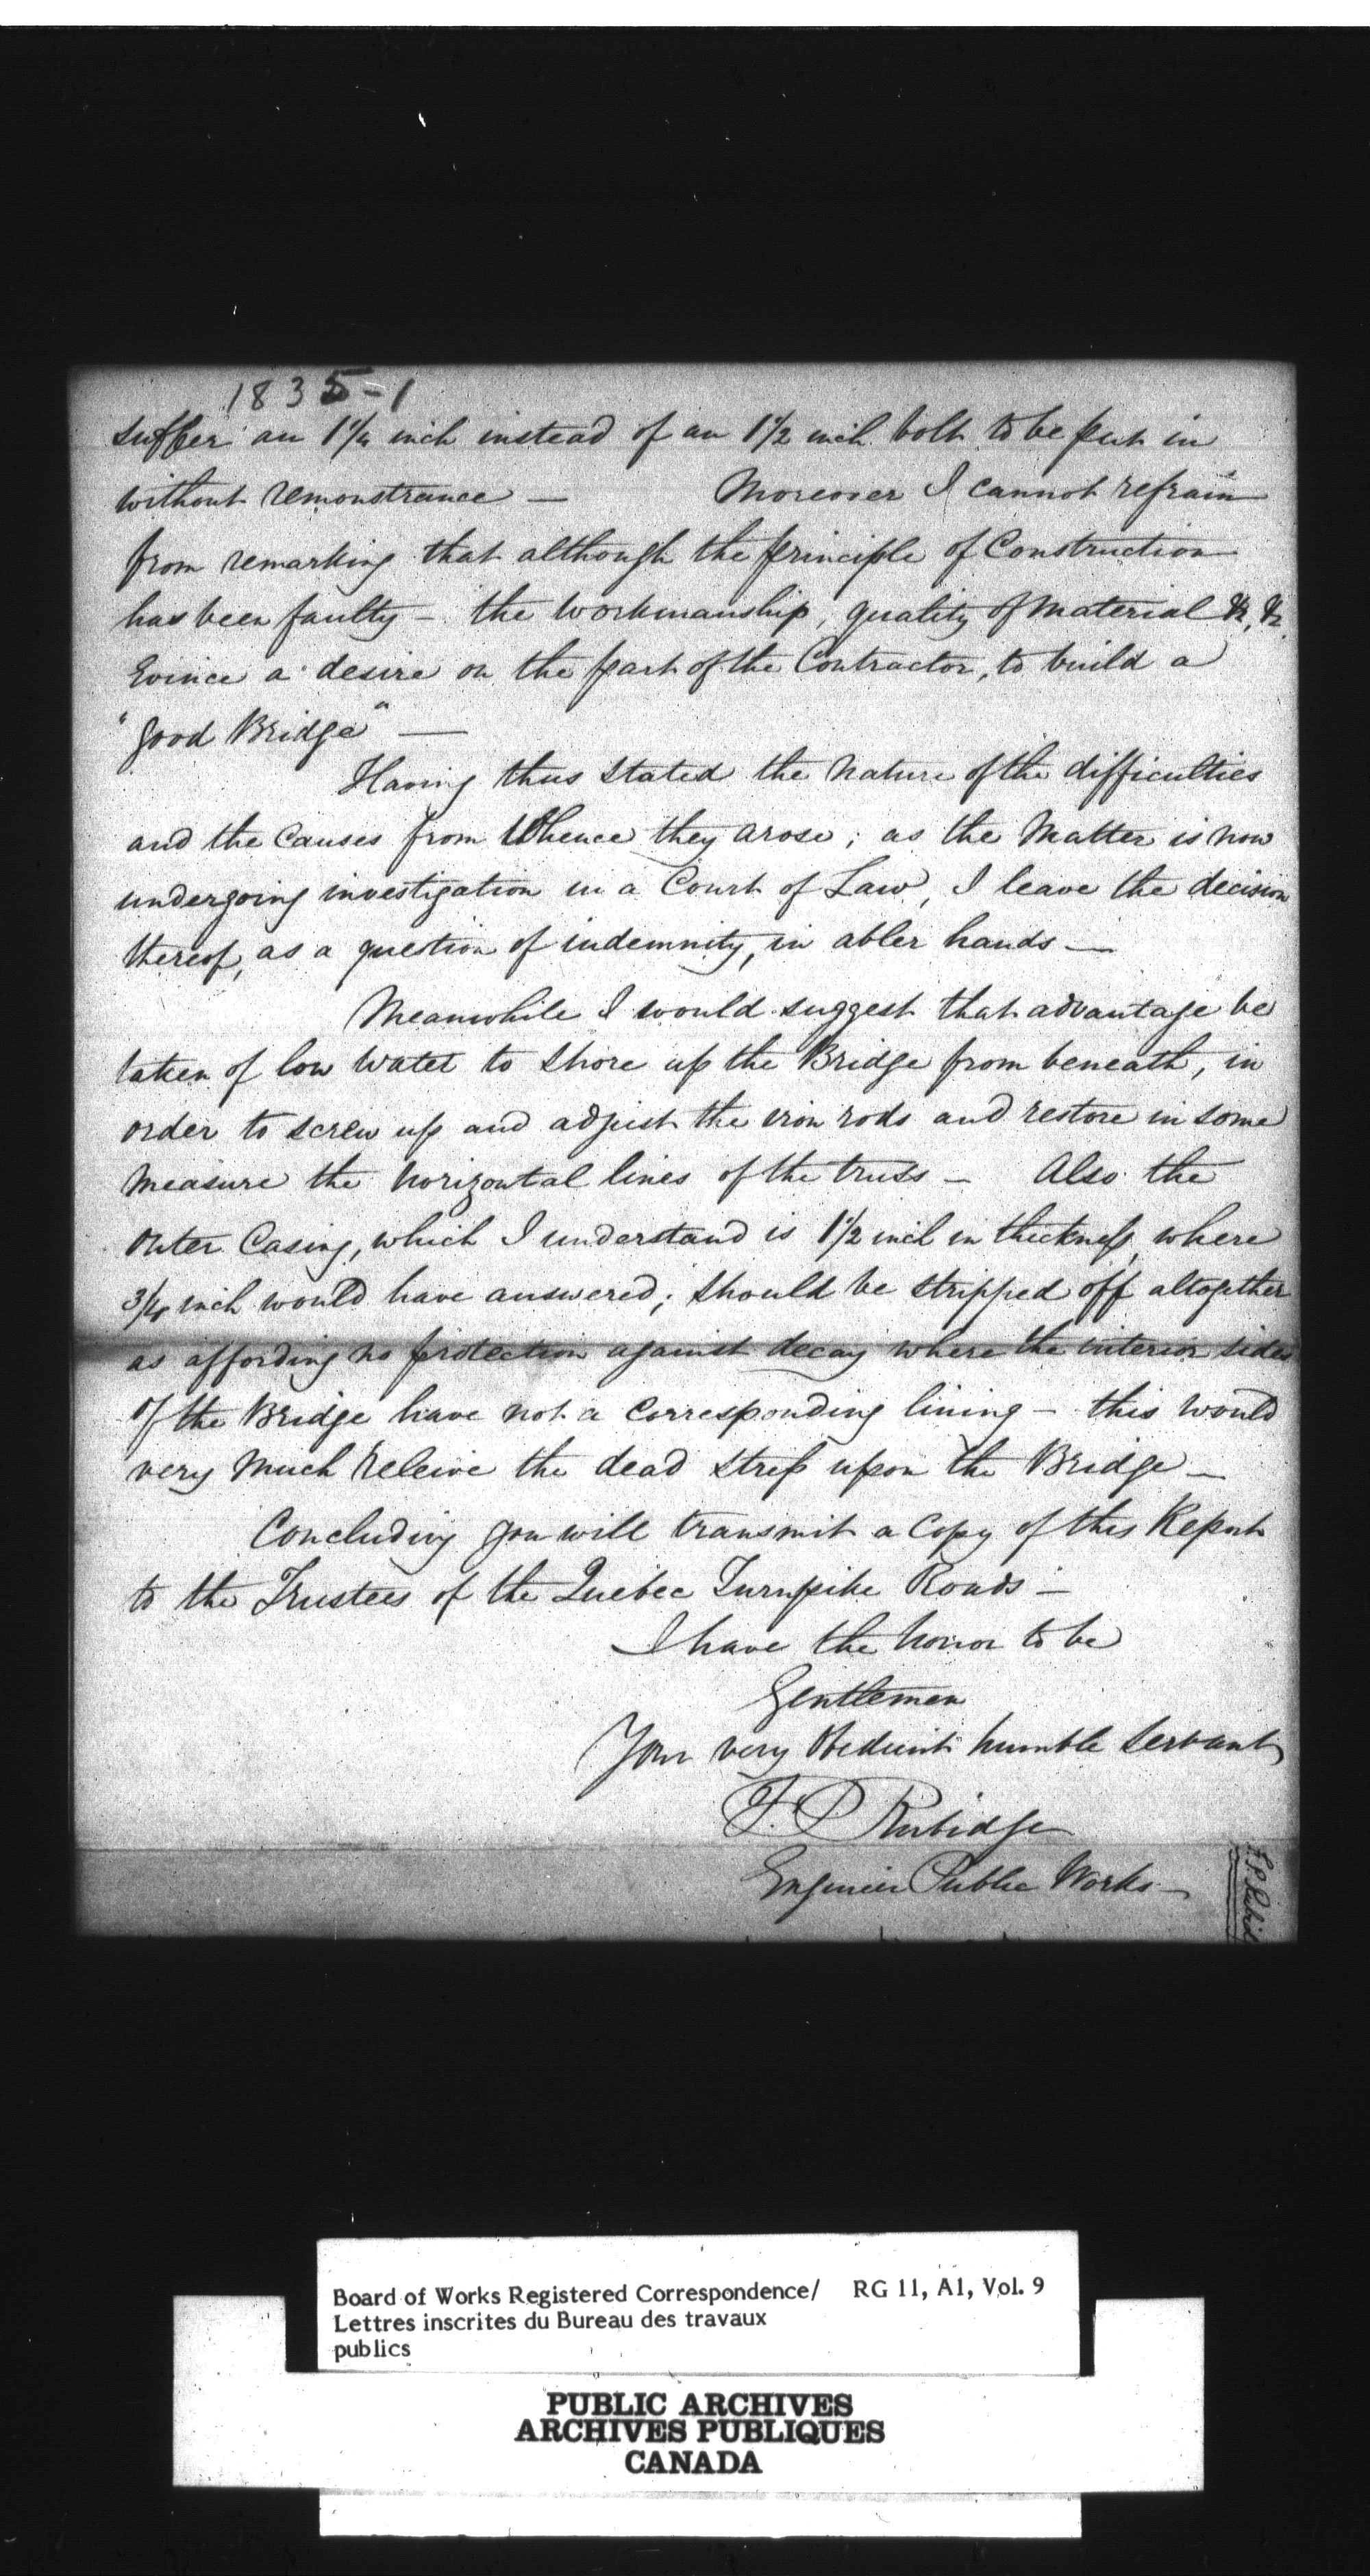 1835-1
suffer an 1¼ inch instead of an 1½ inch bolt to be put in
without remonstrance — Moreover I cannot refrain
from remarking that although the principle of Construction
has been faulty – the workmanship, quality of material &c, &c.
Evince a desire on the part of the Contractor, to build a
"good Bridge" —
Having thus stated the nature of the difficulties
and the Causes from Whence they arose; as the Matter is now
undergoing investigation in a Court of Law, I leave the decision
thereof, as a question of indemnity, in abler hands —
Meanwhile I would suggest that advantage be
taken of low Water to Shore up the Bridge from beneath, in
order to screw up and adjust the iron rods and restore in some
measure the horizontal lines of the truss – Also the
outer Casing, which I understand is 1½ inch in thickness, where
3/4 inch would have answered; should be stripped off altogether
as affording no protection against decay where the interior sides
of the Bridge have not a Corresponding lining – this would
very much releive the dead stress upon the Bridge –
Concluding you will transmit a Copy of this Report
to the Trustees of the Quebec Turnpike Roads –
I have the honor to be
Gentlemen
Your very Obedient humble Servant
F. P. Rubidge
Engineer Public Works –
F. P. Rubid
Board of Works Registered Correspondence/ RG 11, A1, Vol. 9
Lettres inscrites du Bureau des travaux
publics
PUBLIC ARCHIVES
ARCHIVES PUBLIQUES
CANADA